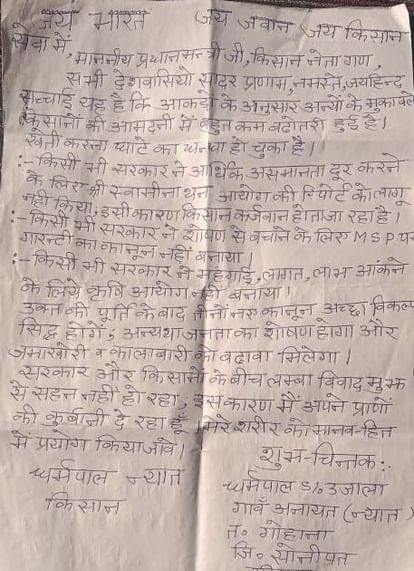 जय भारत जय जवान जय किसान
सेवा में,
माननीय प्रधानमन्त्री जी, किसान नेतागण,
सभी देशवासियो सादर प्रणाम, नमस्ते, जयहिन्द
सच्चाई यह है कि आकड़ो के अनुसार अन्यों के मुकाबले
किसानों की आमदनी में बहुत कम बढोतरी हुई है।
खेती करना घाटे का धन्धा हो चुका है।
:- किसी भी सरकार ने आर्थिक असमानता दूर करने
के लिए श्री स्वामीनाथन आयोग की रिपोर्ट को लागू
नहीं किया, इसी कारण किसान कर्जवान होता जा रहा है।
:- किसी भी सरकार ने शोषण से बचाने के लिए MSP पर
गारन्टी का कानून नहीं बनाया।
:- किसी भी सरकार ने महगाई, लागत, लाभ आंकने
के लिये कृषि आयोग नहीं बनाया।
उक्त की पूर्ति के बाद तीनों नए कानून अच्छा विकल्प
सिद्ध होगें; अन्यथा जनता का शोषण होगा और
जमाखोरी व कालाबारी को बढावा मिलेगा।
सरकार और किसानो के बीच लम्बा विवाद मुझ
से सहन नहीं हो रहा, इस कारण मैं अपने प्राणों
की कुर्बानी दे रहा हूँ, मेरे शरीर को मानव-हित
में प्रयोग किया जावे।
धर्मपाल न्यात
किसान
शुभ-चिन्तक:-
धर्मपाल s/o उजाला
गावँ अनायत (न्यात)
त० गोहाना
जि० सोनीपत